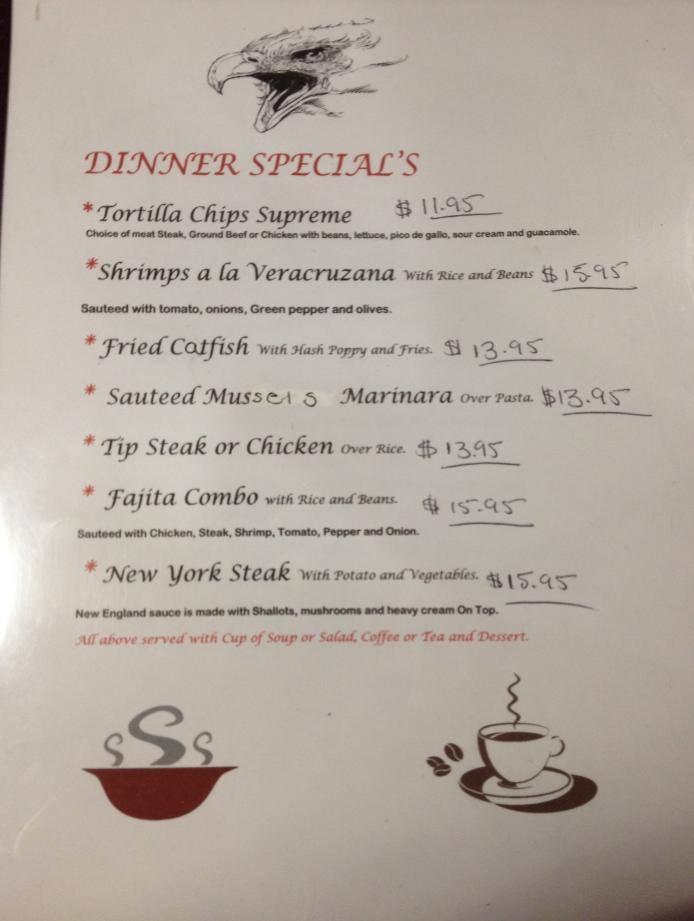 DINNER SPECIAL'S
*Tortilla Chips Supreme $ 11.95
Choice of meat Steak, Ground Beef or Chicken with beans, lettuce, pico de gallo, sour cream and guacamole.
*Shrimps a la Veracruzana With Rice and Beans $15.95
Sauteed with tomato, onions, Green pepper and olives.
* Fried Catfish With Hash Poppy and Fries. $ 13.95
* Sauteed Mussels Marinara Over Pasta. $13.95
* Tip Steak or Chicken Over Rice. $ 13.95
* Fajita Combo with Rice and Beans. $ 15.95
Sauteed with Chicken, Steak, Shrimp, Tomato, Pepper and Onion.
* New York Steak With Potato and Vegetables. $15.95
New England sauce is made with Shallots, mushrooms and heavy cream On Top.
All above served with Cup of Soup or Salad, Coffee or Tea and Dessert.